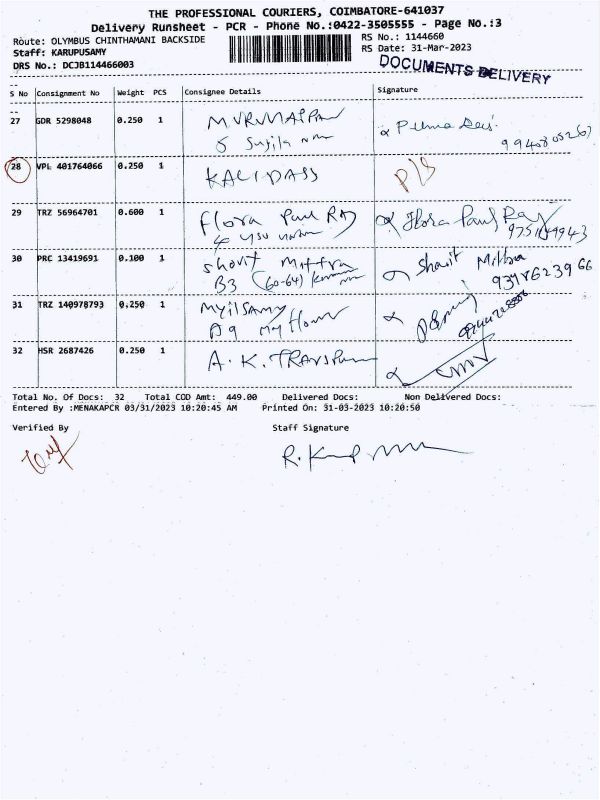 THE PROFESSIONAL COURIERS, COIMBATORE-641037
Delivery Runsheet - PCR - Phone No.:0422-3505555 - Page No.:3
Route: OLYMBUS CHINTHAMANI BACKSIDE
RS No.: 1144660
Staff: KARUPUSAMY
RS Date: 31-Mar-2023
DRS No.: DCJB114466003
DOCUMENTS DELIVERY
S No Consignment No Weight PCS Consignee Details Signature
27 GDR 5298048 0.250 1
28 VPL 401764066 0.250 1 KALIDASS P/S
29 TRZ 56964701 0.600 1 Flora Paul RAJ Flora Paul Raj
30 PRC 13419691 0.100 1 Shovit Mittra
B3 (60-64)
31 TRZ 140978793 0.250 1 Myilsamy
A9 My flower
32 HSR 2687426 0.250 1 A. K. TRANSPORT
Total No. Of Docs: 32 Total COD Amt: 449.00 Delivered Docs: Non Delivered Docs:
Entered By :MENAKAPCR 03/31/2023 10:20:45 AM Printed On: 31-03-2023 10:20:50
Verified By Staff Signature